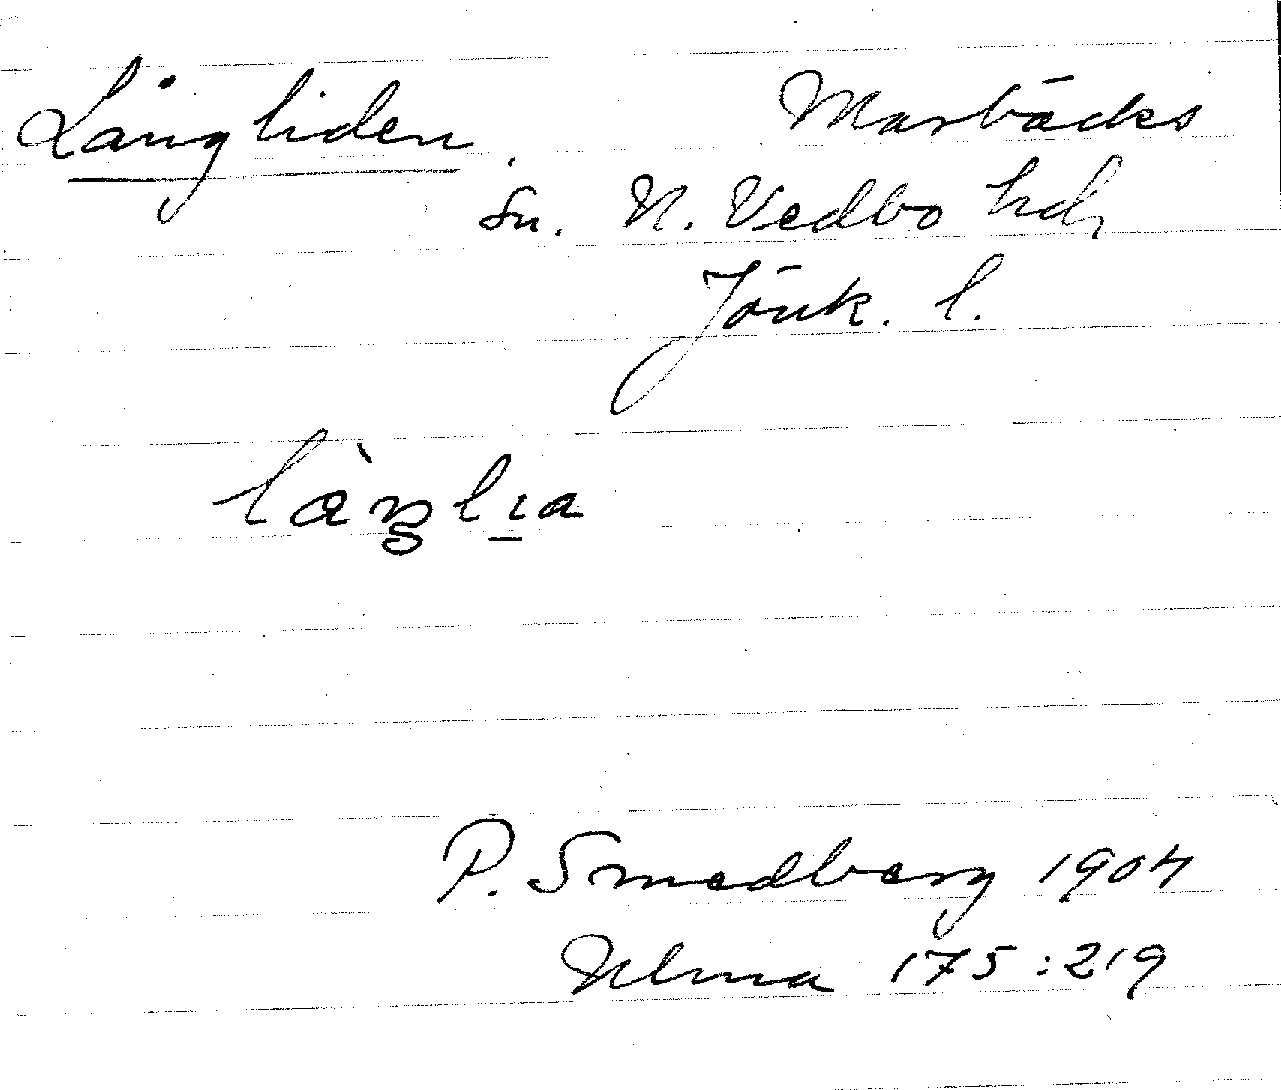 Långliden. Marbäcks
sn. N. Vedbo hd,
Jönk. l.
làŋlıa
P. Smedberg 1904
Ulma 175:219